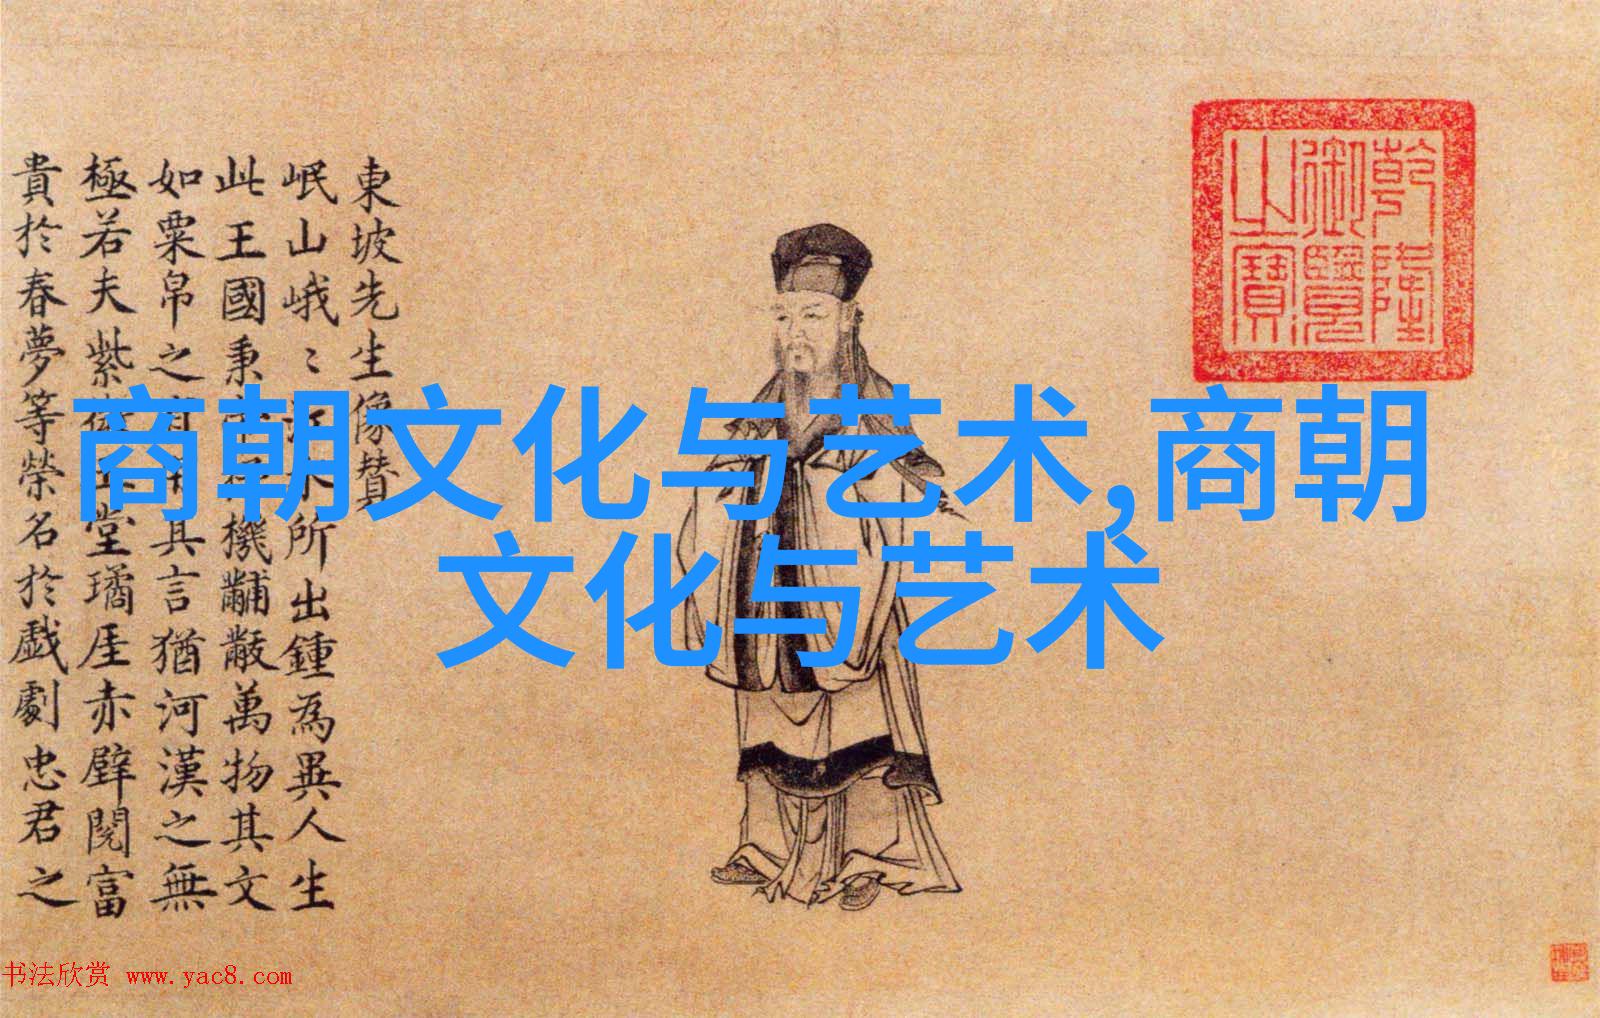 東坡先生像贊
岷山峨〻江水所出鍾為異人生
此王國秉帝杼機黼黻萬物其文
如粟帛之有用其言猶河漢之無
極若夫紫微玉堂璚厓赤壁閱富
貴於春夢等榮名於戲劇忠君之
乾隆
御覽
之寶
商朝文化与艺术,商朝
文化与艺术
书法欣赏 www.yac8.com